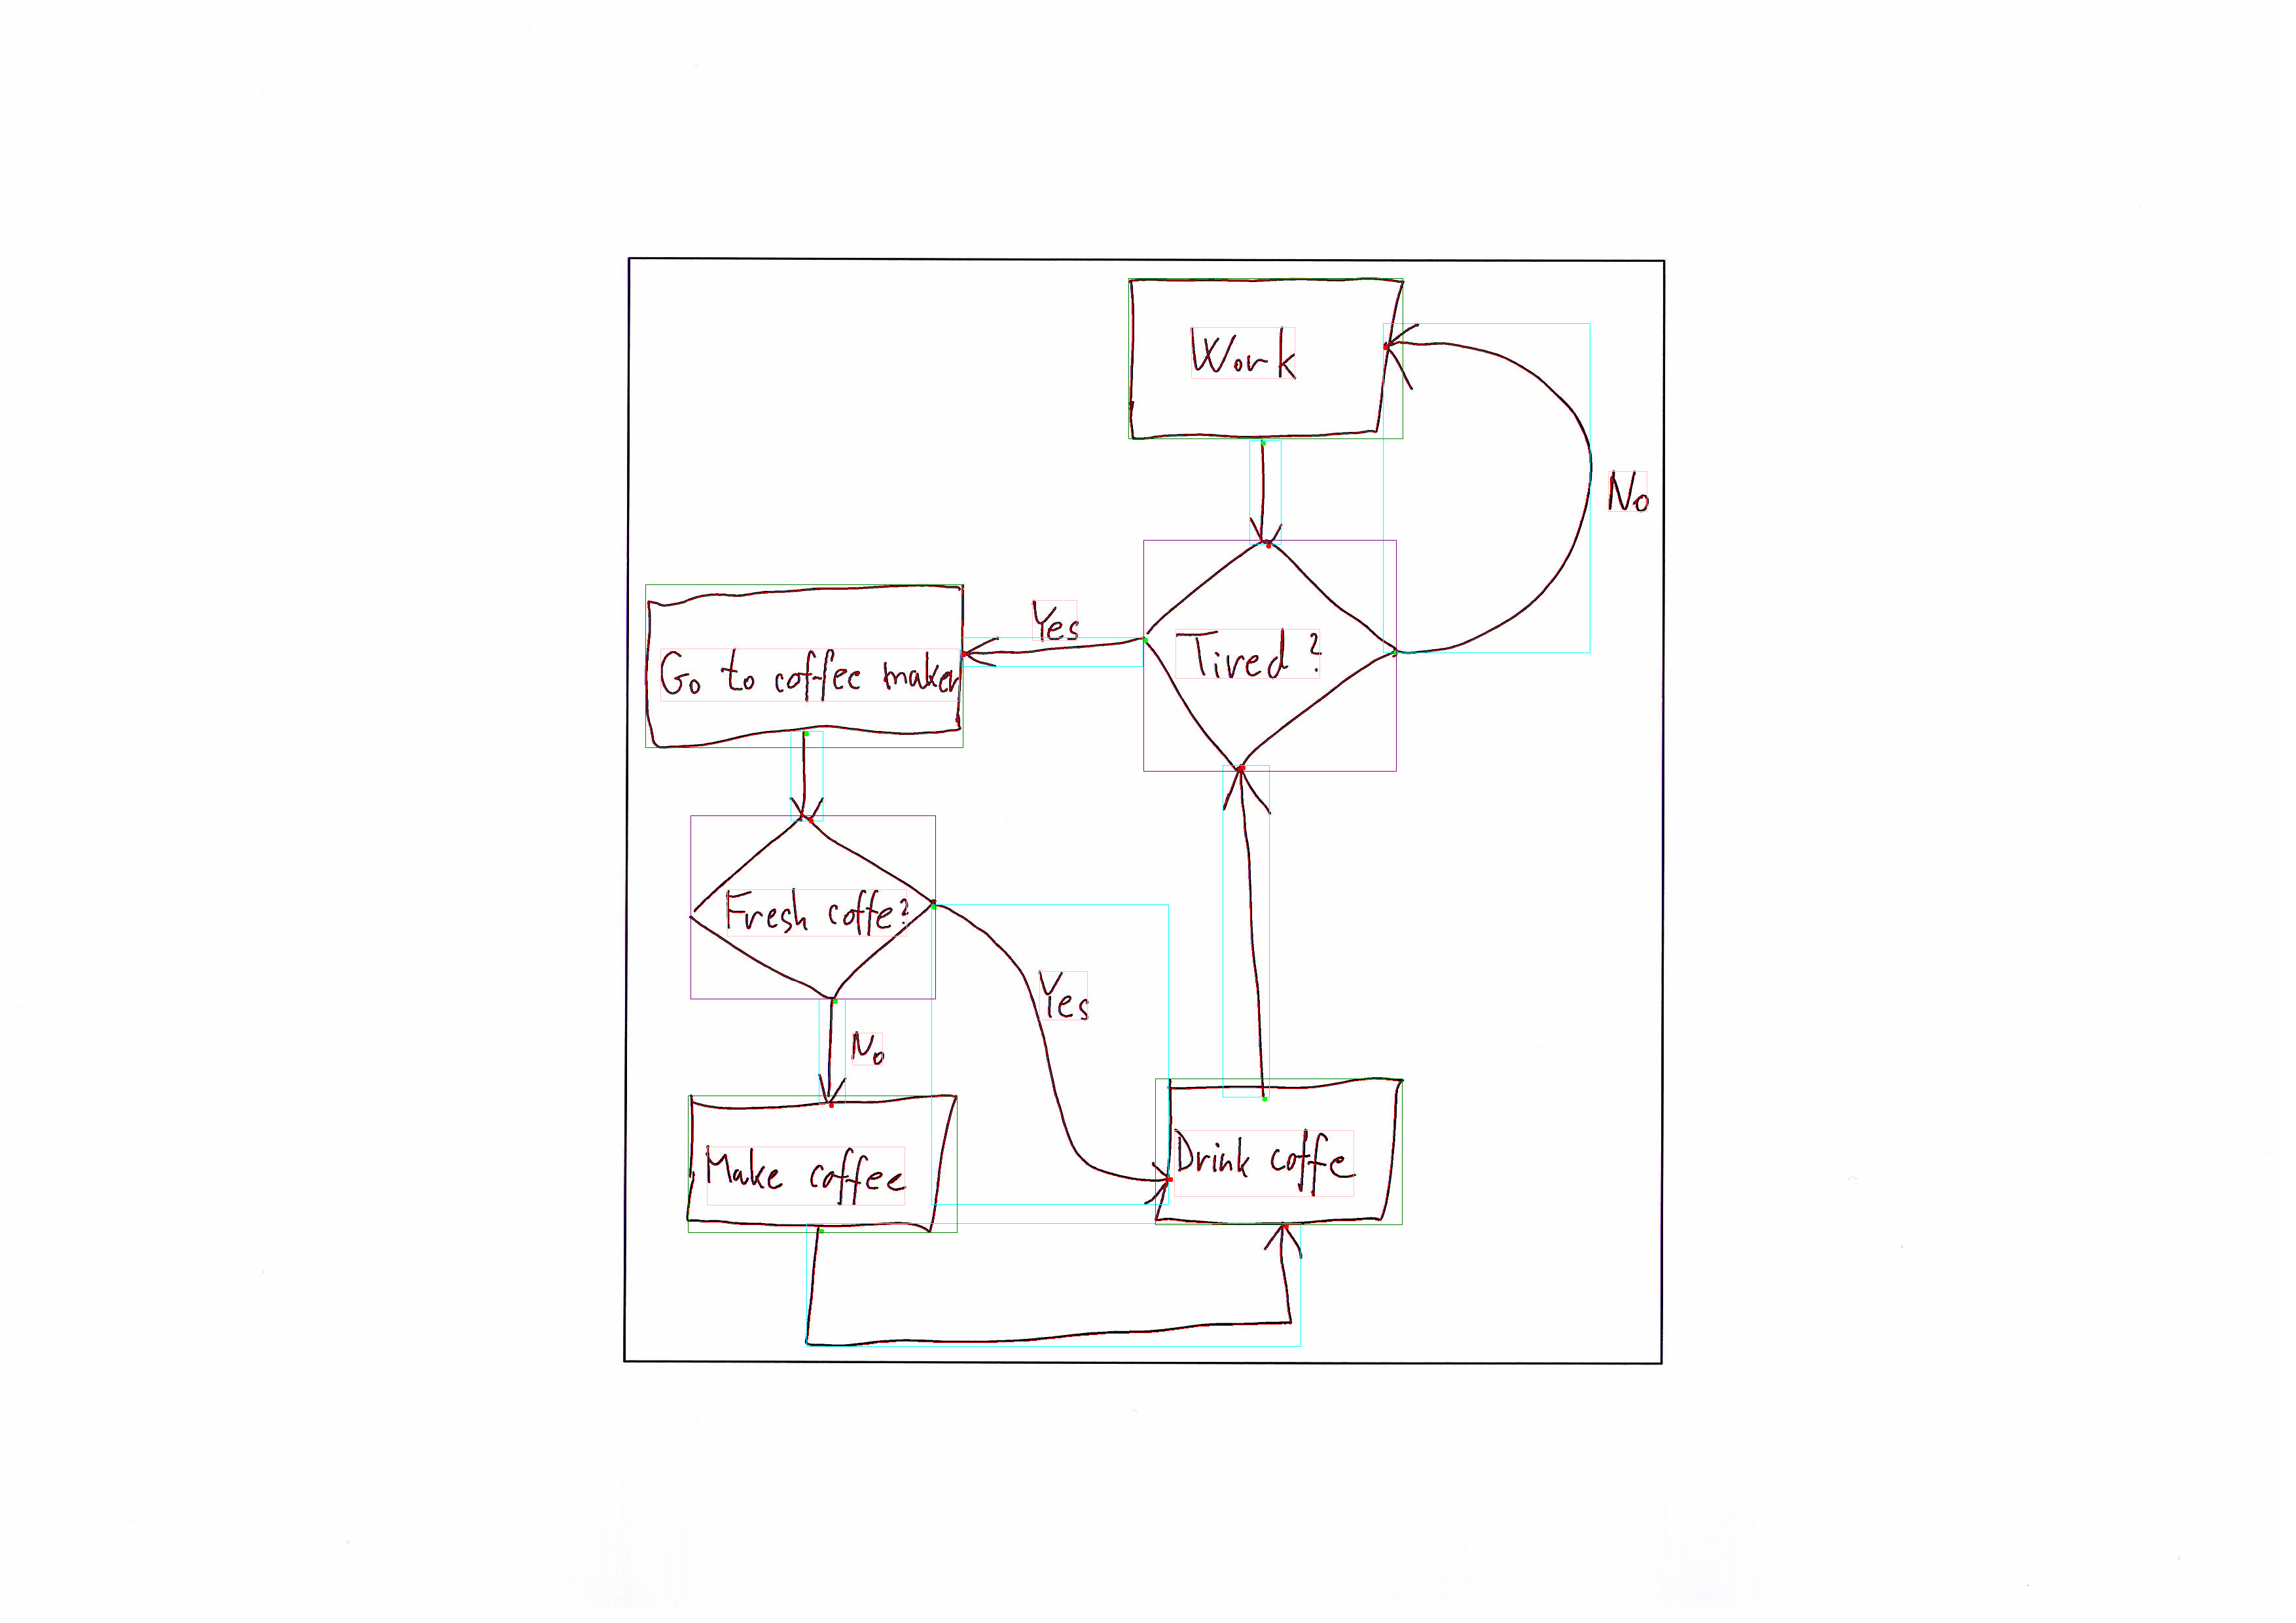 Work
No
Yes
Tired ?
Go to coffee maker
Fresh coffe?
Yes
No
Make coffee
Drink coffe